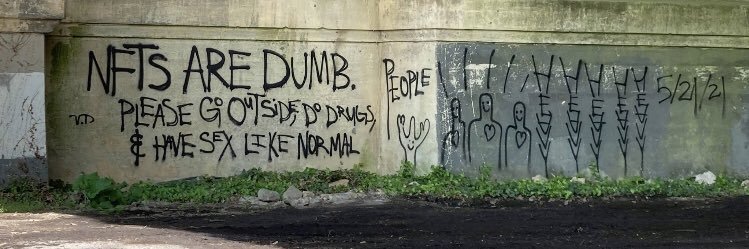 NFTS ARE DUMB.
PLEASE GO OUTSIDE, DO DRUGS,
& HAVE SEX LIKE NORMAL
PEOPLE
5/21/21